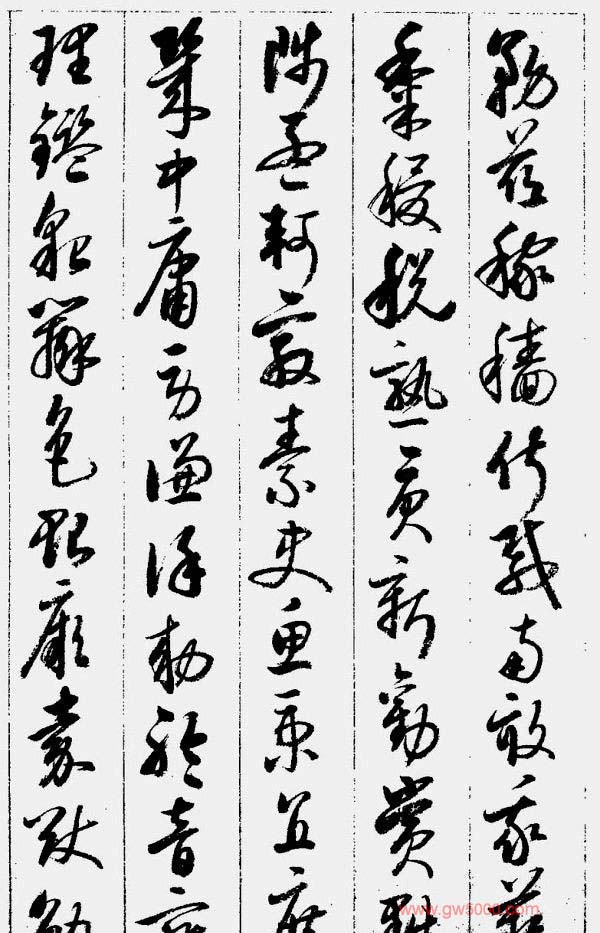 務茲稼穡俶載南畝我藝
黍稷稅熟貢新勸賞黜
陟孟軻敦素史魚秉直庶
幾中庸勞謙謹敕聆音察
理鑑貌辨色貽厥嘉猷勉
www.gw5000.com